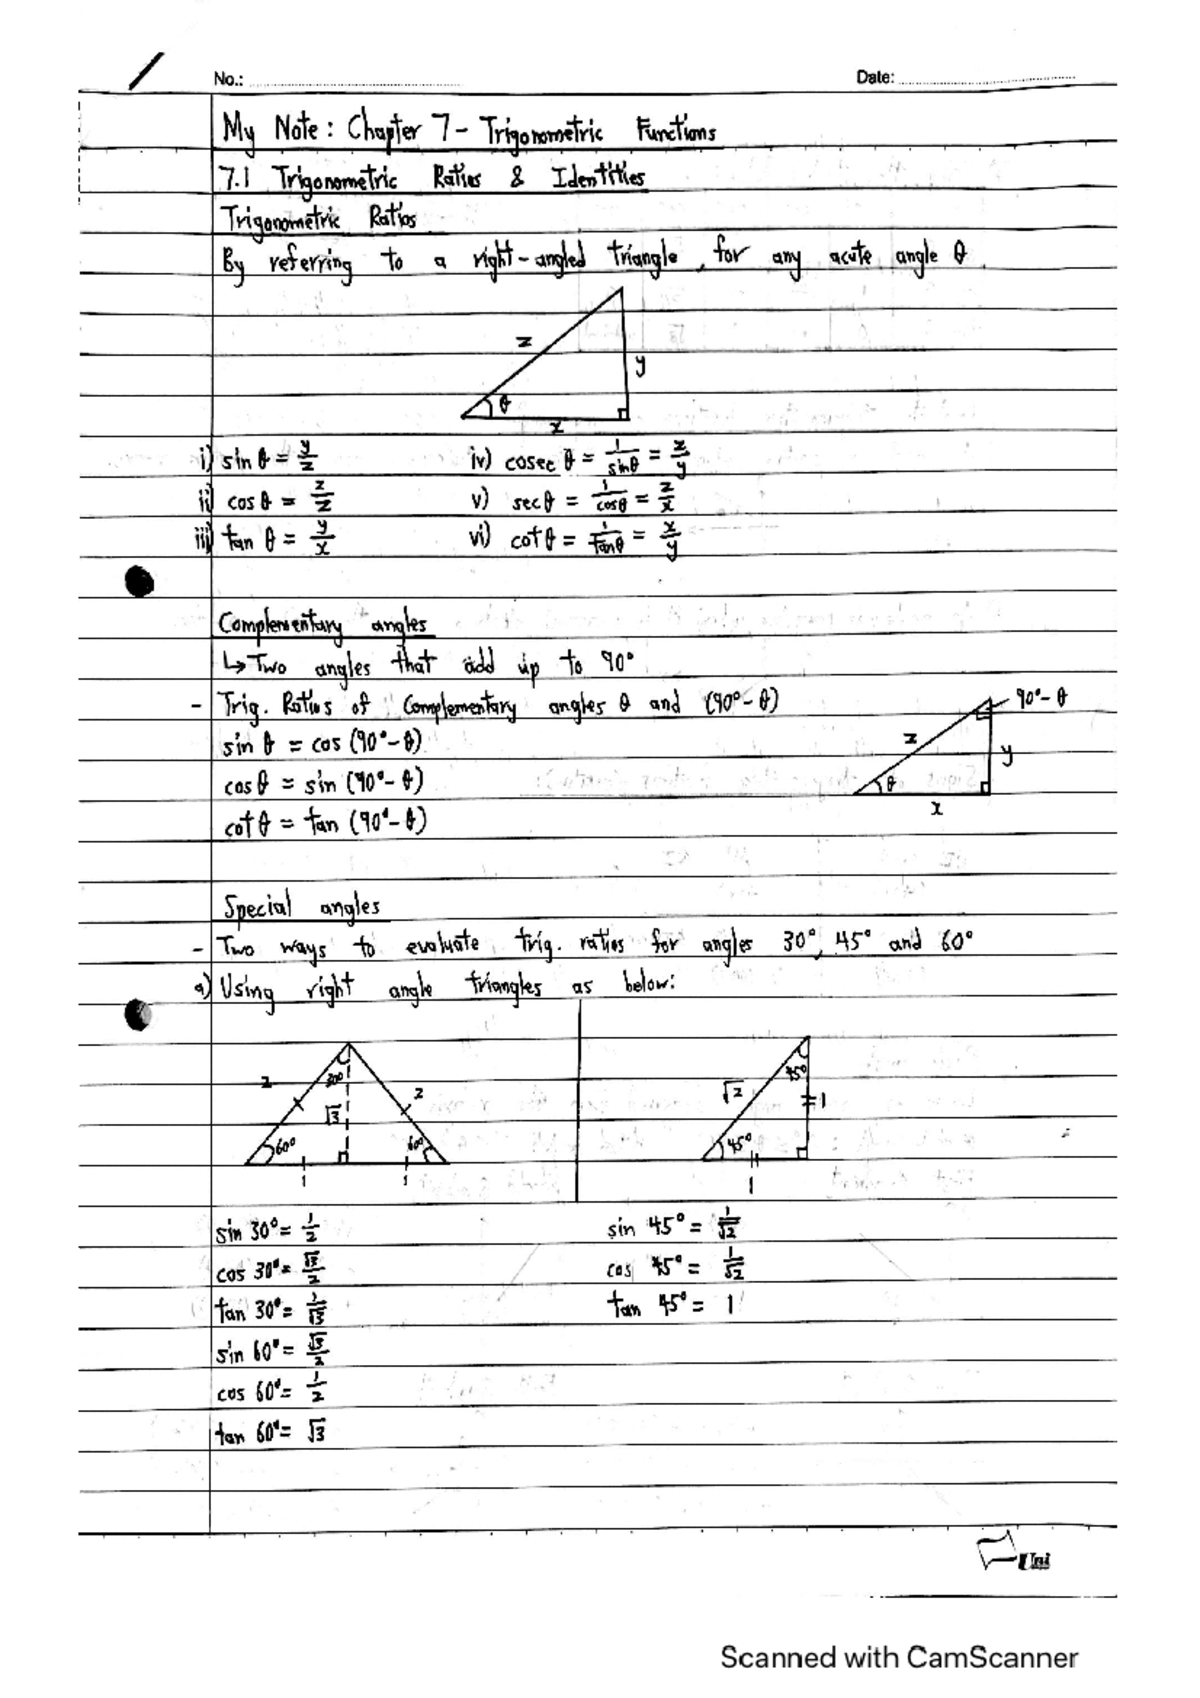 No.: Date:
My Note: Chapter 7 - Trigonometric Functions
7.1 Trigonometric Ratios & Identities
Trigonometric Ratios
By referring to a right-angled triangle, for any acute angle θ
z
y
θ
x
i) sin θ = y/z iv) cosec θ = 1/sinθ = z/y
ii) cos θ = z/z v) sec θ = 1/cosθ = z/x
iii) tan θ = y/x vi) cot θ = 1/tanθ = x/y
Complementary angles
↳ Two angles that add up to 90°
- Trig. Ratios of Complementary angles θ and (90° - θ)
90° - θ
sin θ = cos (90° - θ)
z
y
cos θ = sin (90° - θ)
θ
x
cot θ = tan (90° - θ)
Special angles
- Two ways to evaluate trig. ratios for angles 30°, 45° and 60°
a) Using right angle triangles as below:
2 30° 2
√3
60° 60°
1 1
45°
√2 1
45°
1
sin 30° = 1/2 sin 45° = 1/√2
cos 30° = √3/2 cos 45° = 1/√2
tan 30° = 1/√3 tan 45° = 1
sin 60° = √3/2
cos 60° = 1/2
tan 60° = √3
Uni
Scanned with CamScanner